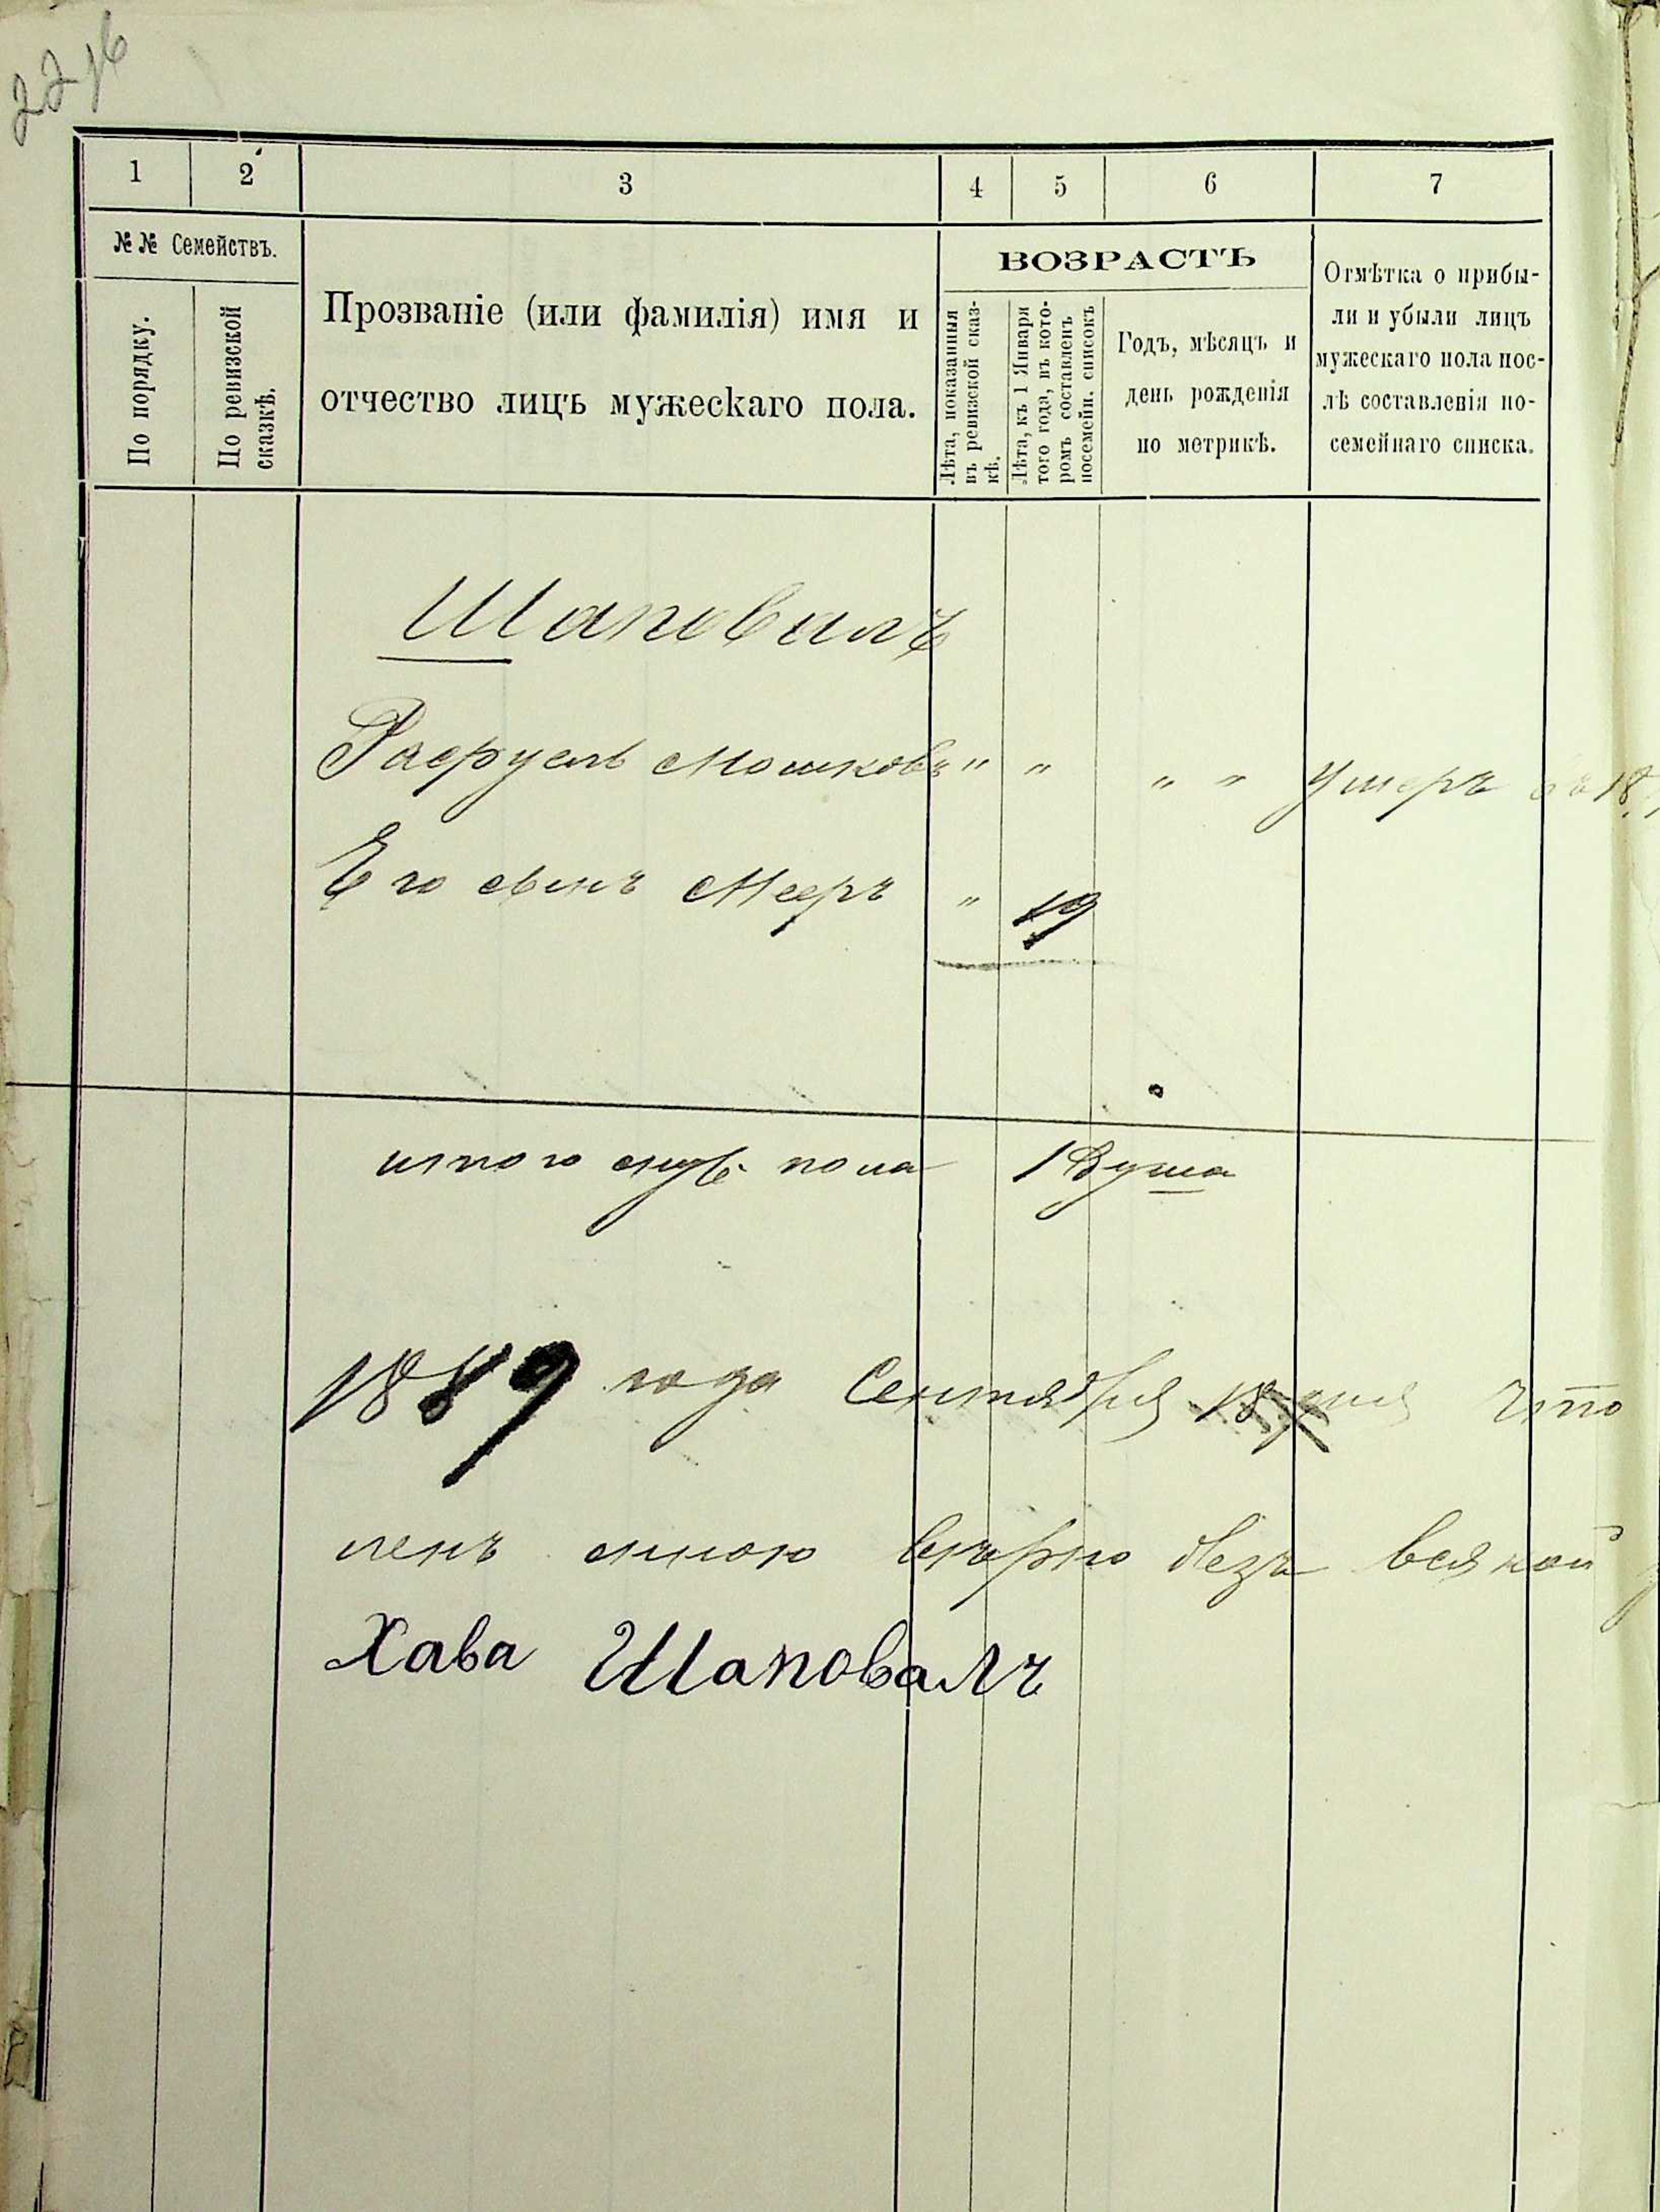 1 2 3 4 5 6 7
№№ Семействъ.
По порядку.
По ревизской
сказкѣ.
Прозваніе (или фамилія) имя и
отчество лицъ мужескаго пола.
ВОЗРАСТЪ
Лѣта, показанныя
въ ревизской сказ-
кѣ.
Лѣта, къ 1 Января
того года, въ кото-
ромъ составленъ
посемейн. списокъ
Годъ, мѣсяцъ и
день рожденія
по метрикѣ.
Отмѣтка о прибы-
ли и убыли лицъ
мужескаго пола пос-
лѣ составленія по-
семейнаго списка.
Шаповалъ
Мошковъ " " " " Умеръ въ 18
Его сынъ Мееръ " 19
итого муж. пола 1 душа
1889 года Сентября 18 дня что
ленъ мною вѣрно безъ всякой
Хава Шаповалъ